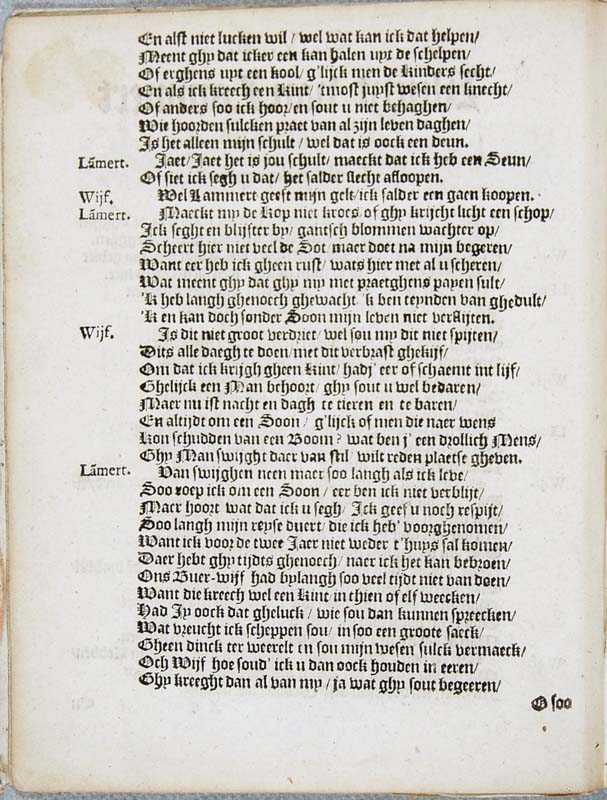 En alst niet lucken wil / wel wat kan ick dat helpen/
Meent ghy dat icker een kan halen uyt de schelpen/
Of erghens uyt een kool / g'lijck men de kinders secht/
En als ick kreech een Kint / 'tmost juyst wesen een knecht/
Of anders soo ick hoor/ en sout u niet behaghen/
Wie hoorden sulcken praet van al zijn leven daghen/
Is het alleen mijn schult / wel dat is oock een deun.
Lãmert. Jaet/ Jaet het is jou schult/ maeckt dat ick heb een Seun/
Of siet ick segh u dat/ het salder slecht afloopen.
Wijf. Wel Lammert geeft mijn gelt/ ick salder een gaen koopen.
Lãmert. Maeckt my de kop niet kroes/ of ghy krijcht licht een schop/
Ick seght en blijster by/ gantsch blommen wachter op/
Scheert hier niet veel de Sot/ maer doet na mijn begeren/
Want eer heb ick gheen rust/ wats hier met al u scheren/
Wat meent ghy dat ghy my met praetghens payen sult/
'K heb langh ghenoech ghewacht/ 'k ben teynden van ghedult/
'K en kan doch sonder Soon mijn leven niet verslijten.
Wijf. Is dit niet groot verdriet/ wel sou my dit niet spijten/
Dits alle daegh te doen/ met dit verbrast ghekijf/
Om dat ick krijgh gheen Kint/ hadj' eer of schaemt int lijf/
Ghelijck een Man behoort/ ghy sout u wel bedaren/
Maer nu ist nacht en dagh te tieren en te baren/
En altijdt om een Soon / g'lijck of men die naer wens
Kon schudden van een Boom? wat ben j' een drollich Mens/
Ghy Man swijght daer van stil/ wilt reden plaetse gheven.
Lãmert. Van swijghen neen maer soo langh als ick leve/
Soo roep ick om een Soon / eer ben ick niet verblijt/
Maer hoort wat dat ick u segh/ Ick geef u noch respijt/
Soo langh mijn reyse duert/ die ick heb' voorghenomen/
Want ick voor de twee Jaer niet weder t'huys sal komen/
Daer hebt ghy tijdts ghenoech/ naer ick het kan bebroen/
Ons Buer-wijf had bylangh soo veel tijdt niet van doen/
Want die kreech wel een Kint in thien of elf weecken/
Had Jy oock dat gheluck / wie sou dan kunnen spreecken/
Wat vreucht ick scheppen sou/ in soo een groote saeck/
Gheen dinck ter weerelt en sou mijn wesen sulck vermaeck/
Och Wijf hoe soud' ick u dan oock houden in eeren/
Ghy kreeght dan al van my / ja wat ghy sout begeeren/
O soo